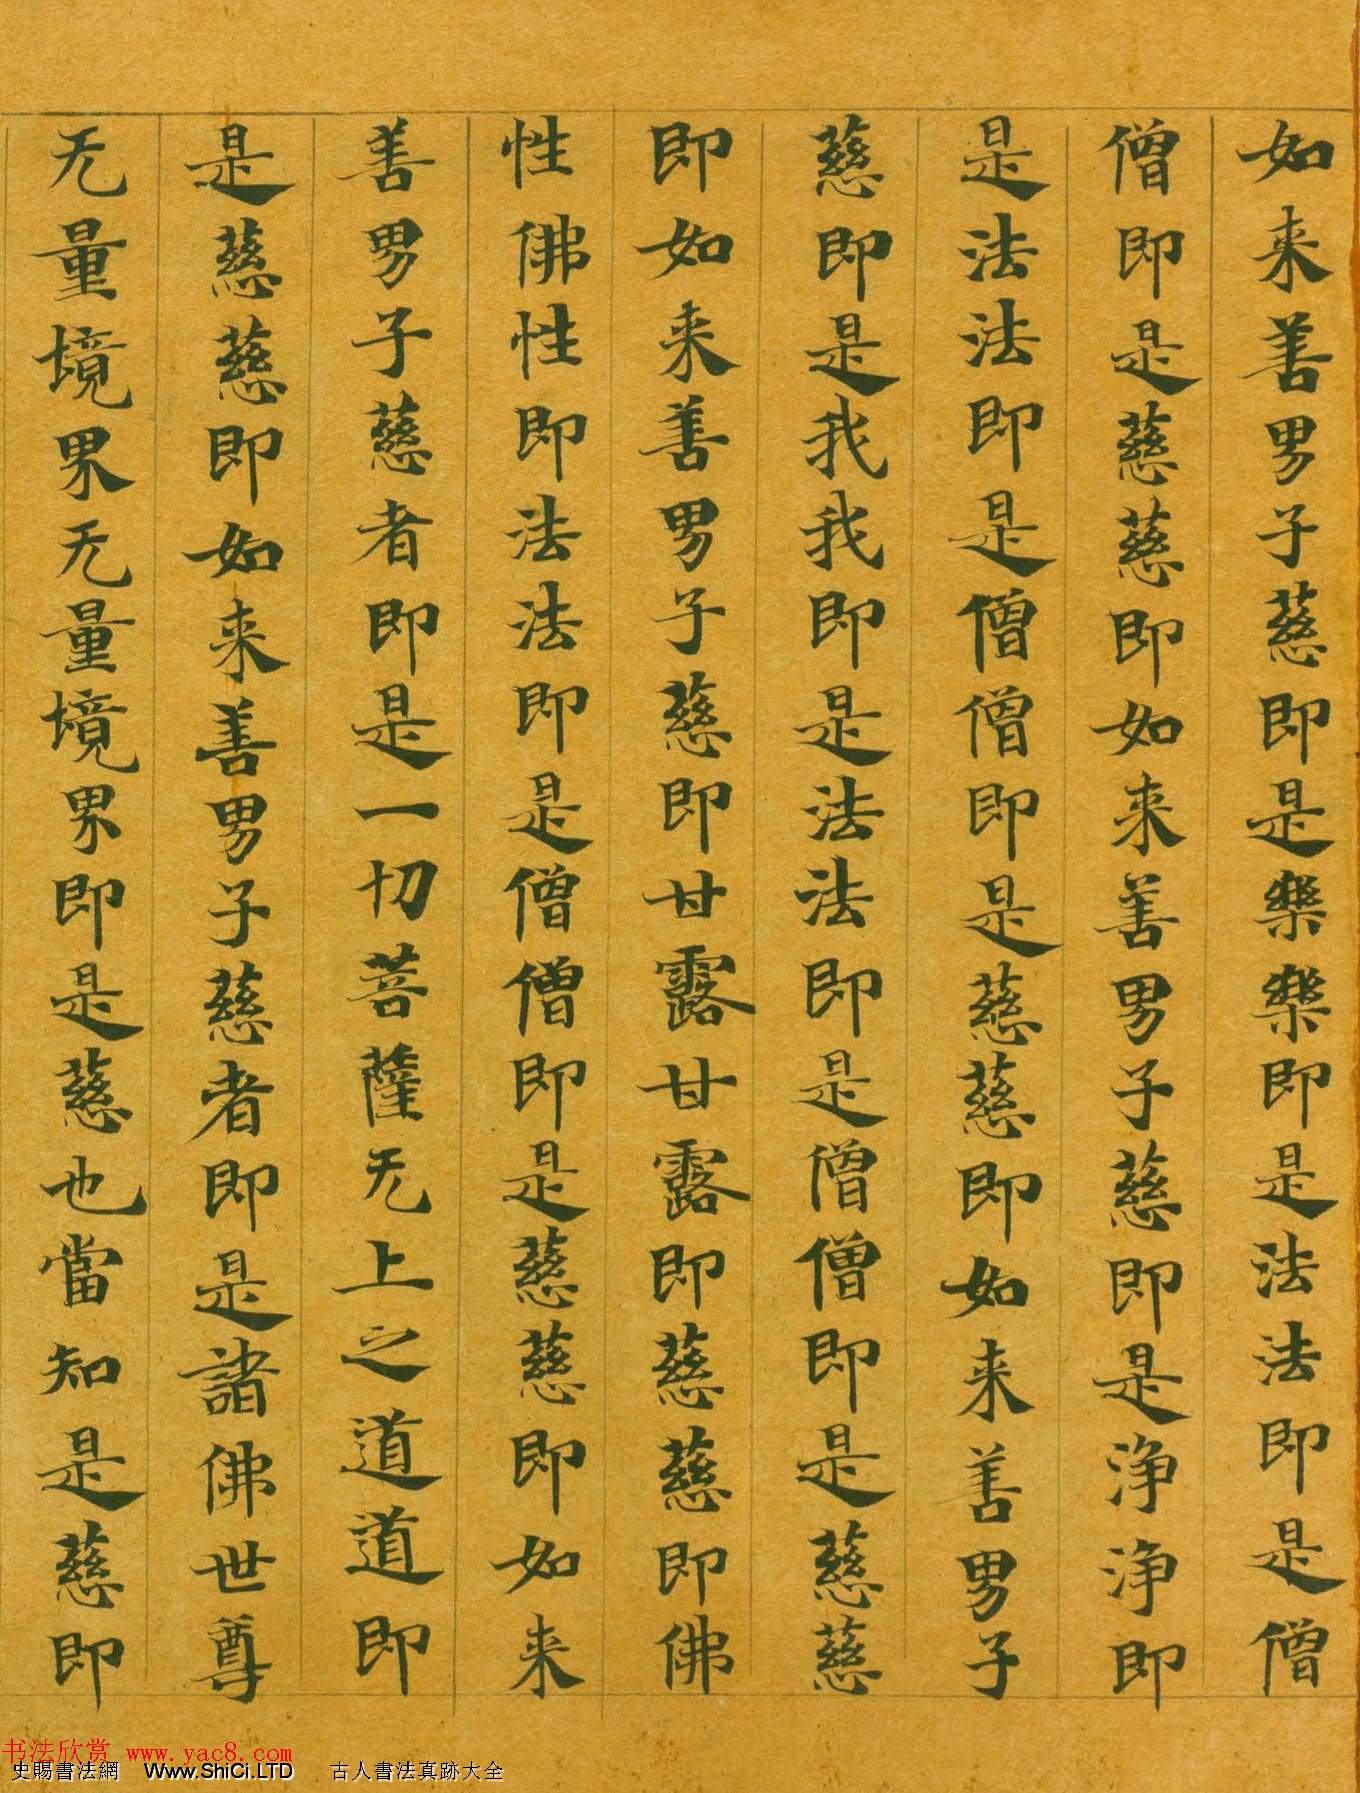 如来善男子慈即是樂樂即是法法即是僧
僧即是慈慈即如来善男子慈即是浄浄即
是法法即是僧僧即是慈慈即如来善男子
慈即是我我即是法法即是僧僧即是慈慈
即如来善男子慈即甘露甘露即慈慈即佛
性佛性即法法即是僧僧即是慈慈即如来
善男子慈者即是一切菩薩无上之道道即
是慈慈即如来善男子慈者即是諸佛世尊
无量境界无量境界即是慈也當知是慈即
书法欣赏 www.yac8.com
史賜書法網 Www.ShiCi.LTD 古人書法真跡大全